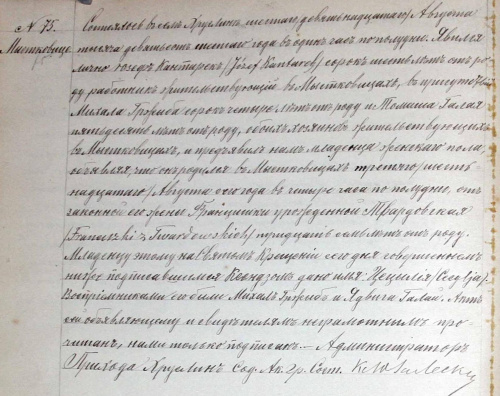 № 75.
Мыстковице
Состоялось въ селѣ Хруслинѣ шестаго /девятнадцатаго/ Августа
тысяча девятьсотъ шестаго года въ одинъ часъ по полудню. Явился
лично Юзефъ Кантарекъ /Józef Kantarek/ сорокъ шесть лѣтъ отъ ро-
ду, работникъ жительствующій въ Мыстковицахъ, въ присутствіи
Михала Гржегба сорокъ четыре лѣтъ отъ роду и Томаша Галая
пятьдесятъ лѣтъ отъ роду, обоихъ хозяевъ жительствующихъ
въ Мыстковицахъ, и предъявилъ намъ младенца женскаго пола
объявляя, что онъ родился въ Мыстковицахъ третяго /шест-
надцатаго/ Августа сего года въ четыре часа по полудню, отъ
законной его жены Францишки урожденной Твардовская
/Franciszki z Twardowskich/ тридцать семь лѣтъ отъ роду.
Младенцу этому на Святомъ Крещеніи сего дня совершенномъ
ниже подписавшимся Ксендзомъ дано имя: Цецилія /Cecylja/.
Воспріемниками его были Михалъ и Ядвига Галай. Актъ
сей объявляющему и свидѣтелямъ неграмотнымъ про-
читанъ, нами только подписанъ. — Администраторъ
Прихода Хруслинъ Сод. Ак. Гр. Сост.